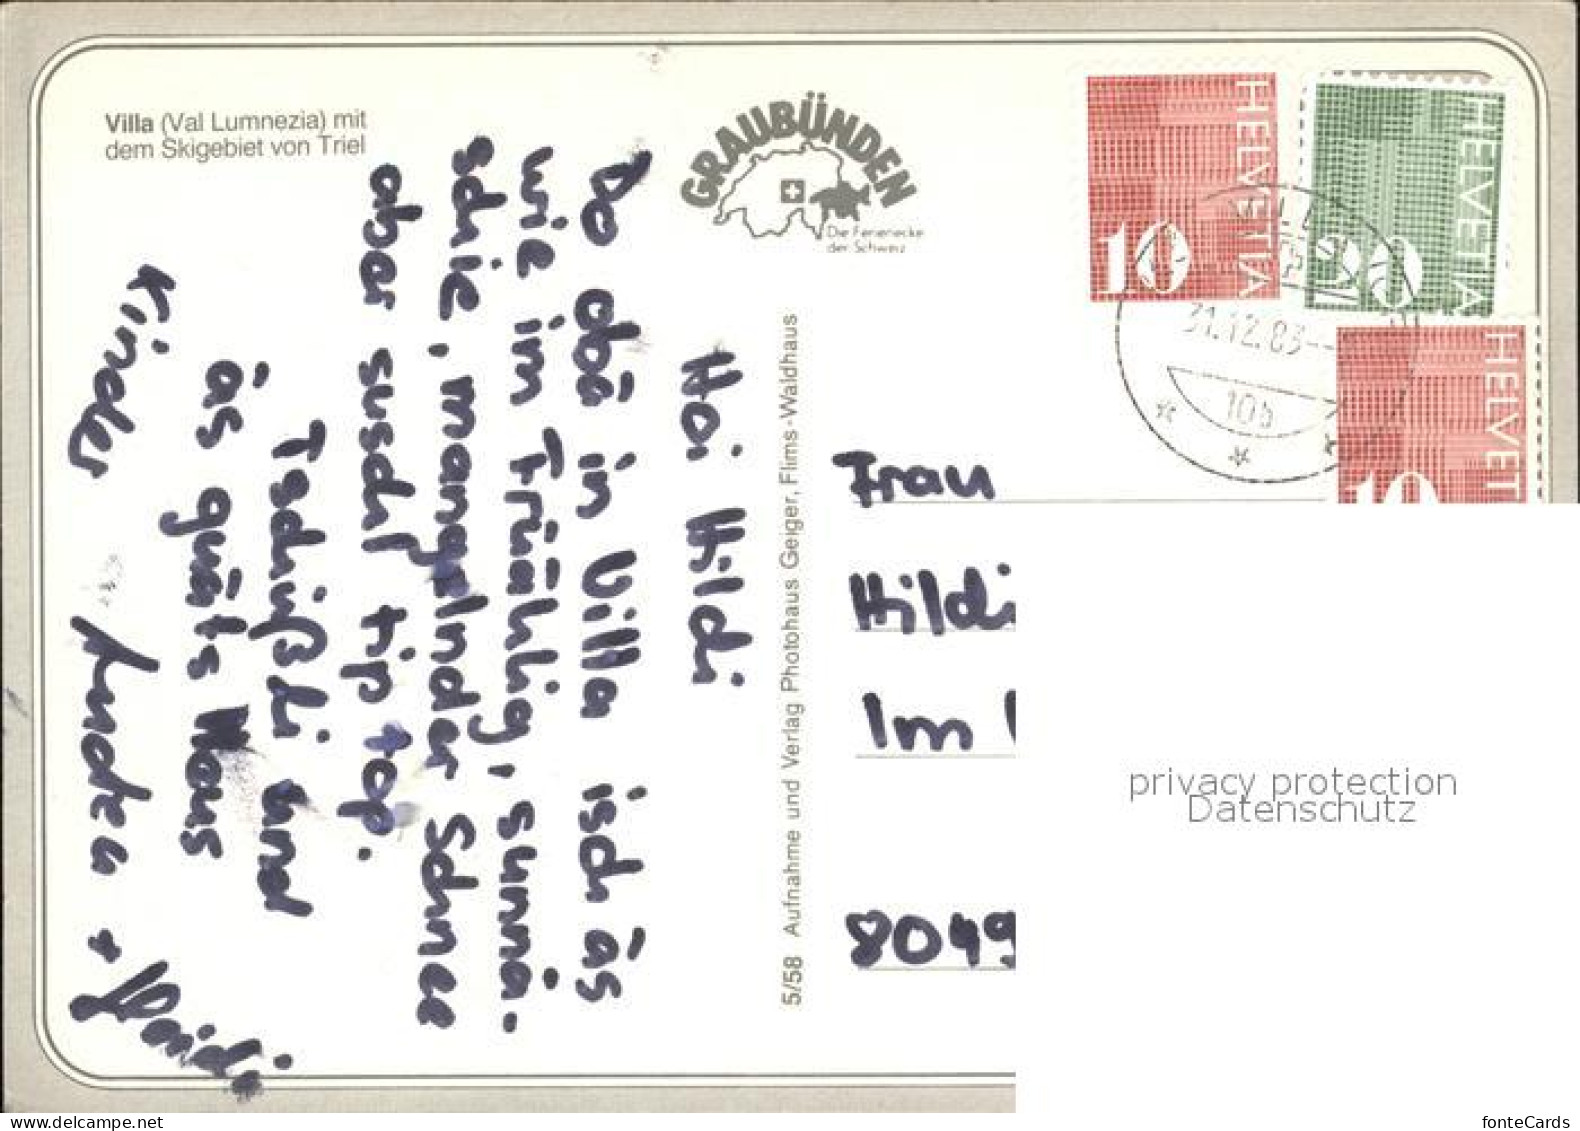 Villa (Val Lumnezia) mit
dem Skigebiet von Triel
GRAUBÜNDEN
Die Ferienecke
der Schweiz
HELVETIA
10
HELVETIA
20
HELVET
10
31.12.83--
10b
Hoi Hildi
Do obä in Villa isch äs
wie im Früehlig, sunnä-
schie, mangelnder Schnee
aber susch tip top.
Tschüßli und
äs guäts Neus
Kinder
5/58 Aufnahme und Verlag Photohaus Geiger, Flims-Waldhaus
Frau
Hildi
Im
8049
privacy protection
Datenschutz
www.delcampe.net
fonteCards